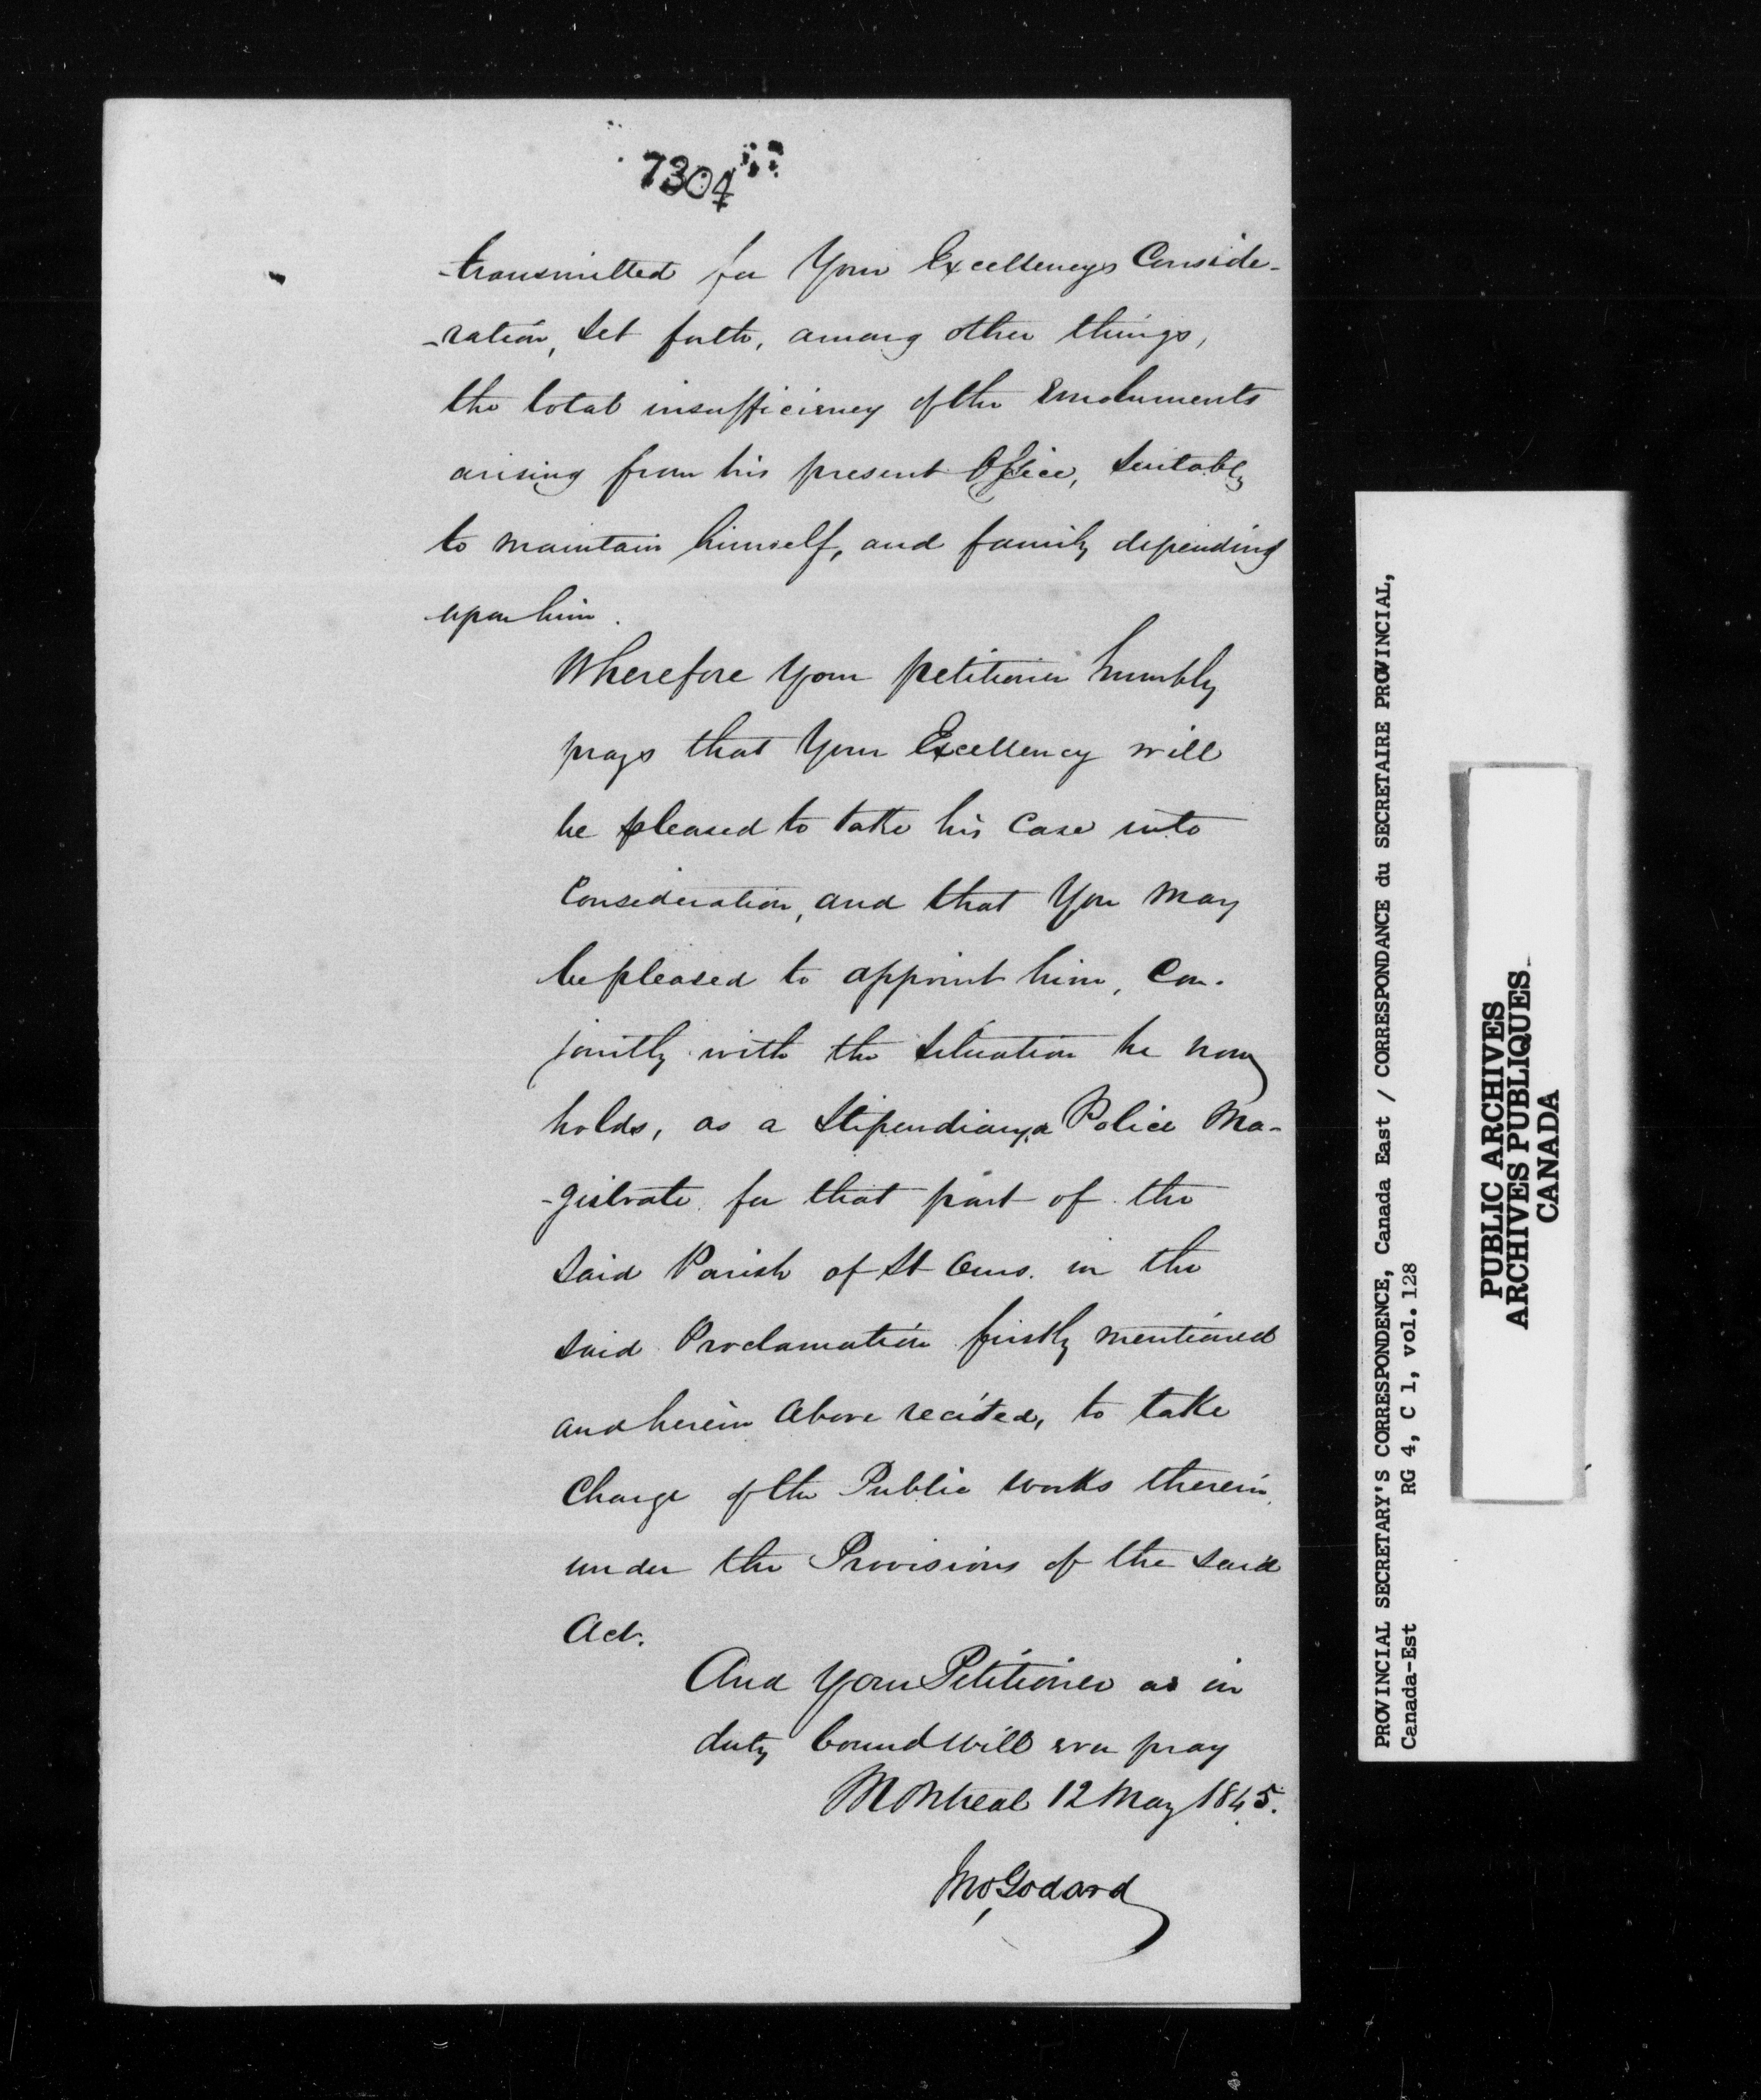 7304
transmitted for Your Excellencys Conside-
-ration, Set forth, among other things,
the total insufficiency of the Emoluments
arising from his present Office, Suitably
to maintain himself, and family depending
upon him.
Wherefore your petitioner humbly
prays that Your Excellency will
be pleased to take his Case into
Consideration, and that You May
be pleased to appoint him, Con-
jointly with the Situation he now
holds, as a Stipendiary, a Police Ma-
-gistrate for that part of the
Said Parish of St Ours. in the
Said Proclamation firstly mentioned
and herein Above recited, to take
Charge of the Public Works therein,
under the Provisions of the Said
Act.
And Your Petitioner as in
duty bound Will ever pray
Montreal 12 May 1845.
Jno, Godard
PROVINCIAL SECRETARY'S CORRESPONDENCE, Canada East / CORRESPONDANCE du SECRETAIRE PROVINCIAL,
Canada-Est RG 4, C 1, vol.128
PUBLIC ARCHIVES
ARCHIVES PUBLIQUES
CANADA